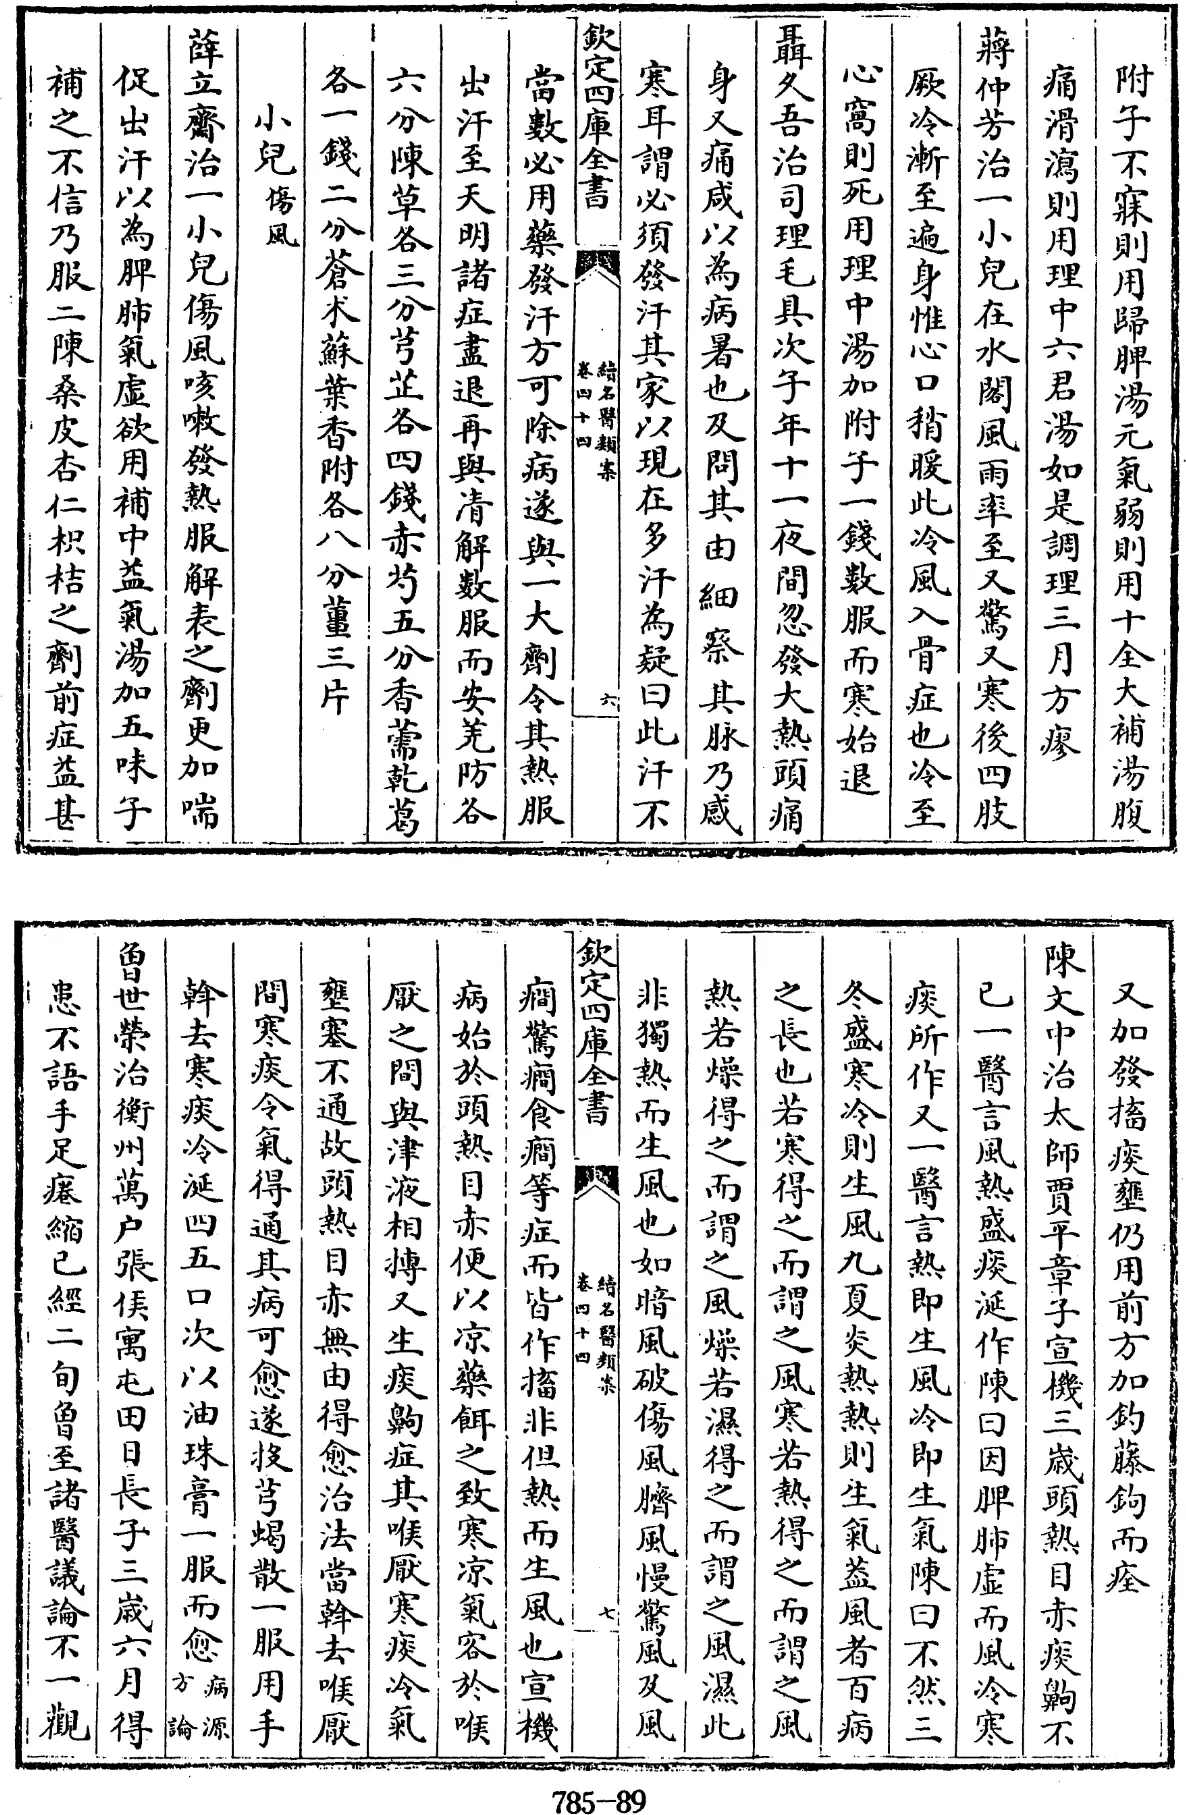 附子不寐則用歸脾湯元氣弱則用十全大補湯腹
痛滑瀉則用理中六君湯如是調理三月方瘳
蔣仲芳治一小兒在水閣風雨率至又驚又寒後四肢
厥冷漸至遍身惟心口稍暖此冷風入骨症也冷至
心窩則死用理中湯加附子一錢數服而寒始退
聶久吾治司理毛具次子年十一夜間忽發大熱頭痛
身又痛咸以為病暑也及問其由細察其脉乃感
寒耳謂必須發汗其家以現在多汗為疑曰此汗不
欽定四庫全書
續名醫類案
卷四十四
六
當數必用藥發汗方可除病遂與一大劑令其熱服
出汗至天明諸症盡退再與清解數服而安羌防各
六分陳草各三分芎芷各四錢赤芍五分香薷乾葛
各一錢二分蒼朮蘇葉香附各八分薑三片
小兒傷風
薛立齋治一小兒傷風咳嗽發熱服解表之劑更加喘
促出汗以為脾肺氣虛欲用補中益氣湯加五味子
補之不信乃服二陳桑皮杏仁枳桔之劑前症益甚
又加發搐痰壅仍用前方加釣藤鉤而痊
陳文中治太師賈平章子宣機三歲頭熱目赤痰齁不
已一醫言風熱盛痰涎作陳曰因脾肺虛而風冷寒
痰所作又一醫言熱即生風冷即生氣陳曰不然三
冬盛寒冷則生風九夏炎熱熱則生氣蓋風者百病
之長也若寒得之而謂之風寒若熱得之而謂之風
熱若燥得之而謂之風燥若濕得之而謂之風濕此
非獨熱而生風也如暗風破傷風臍風慢驚風及風
欽定四庫全書
續名醫類案
卷四十四
七
癎驚癎食癎等症而皆作搐非但熱而生風也宣機
病始於頭熱目赤便以凉藥餌之致寒凉氣客於喉
厭之間與津液相搏又生痰齁症其喉厭寒痰冷氣
壅塞不通故頭熱目赤無由得愈治法當斡去喉厭
間寒痰令氣得通其病可愈遂投芎蝎散一服用手
斡去寒痰冷涎四五口次以油珠膏一服而愈病源方論
曾世榮治衡州萬户張侯寓屯田日長子三歲六月得
患不語手足瘈縮已經二旬曾至諸醫議論不一觀
785—89